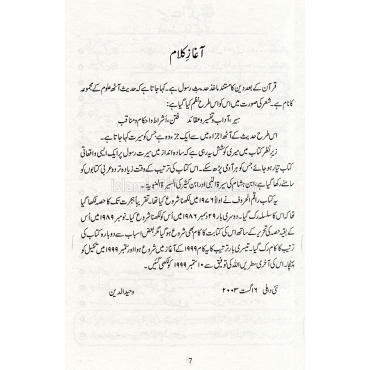 آغازِ کلام
قرآن کے بعد دین کا مستند ماخذ حدیثِ رسول ہے۔ کہا جاتا ہے کہ حدیث آٹھ علوم کے مجموعہ
کا نام ہے۔ شعر کی صورت میں اس کو اس طرح نظم کیا گیا ہے:
سیر، آداب وتفسیر وعقائد فتن، اشراط واحکام ومناقب
اس طرح حدیث کے آٹھ اجزاء میں سے ایک جزء وہ ہے جس کو سیرت کہا جاتا ہے۔
زیر نظر کتاب میں میری کوشش یہ رہی ہے کہ سادہ انداز میں سیرت رسول پر ایک ایسی واقعاتی
کتاب تیار ہو جائے جس کو ہر آدمی پڑھ سکے۔ اس کتاب کی ترتیب کے وقت زیادہ تر دو عربی کتابوں کو
سامنے رکھا گیا ہے، ابن ہشام کی سیرۃ النبی اور ابن کثیر کی السیرۃ النبویۃ۔
یہ کتاب راقم الحروف نے اولاً ۱۹۷۶ میں لکھنا شروع کیا تھا، تقریباً ہجرت تک کا حصہ لکھا گیا
تھا کہ اس کا سلسلہ رک گیا۔ دوسری بار ۲۹ دسمبر ۱۹۸۶ میں اس کو لکھنا شروع کیا۔ نومبر ۱۹۸۹ میں اس
کے بقیہ حصہ کی تحریر کے ساتھ اس کی کتابت کا کام بھی شروع ہو گیا مگر بعض اسباب سے دوبارہ کتاب کی
ترتیب کا کام رک گیا۔ تیسری بار ترتیب کا یہ کام ۱۹۹۹ کے آغاز میں شروع ہوا اور ستمبر ۱۹۹۹ میں تکمیل کو
پہنچا۔ اس کی آخری سطریں اللہ کی توفیق سے ۱۰ ستمبر ۱۹۹۹ کو لکھی گئیں۔
نئی دہلی ۱۶ اگست ۲۰۰۳ وحید الدین
7